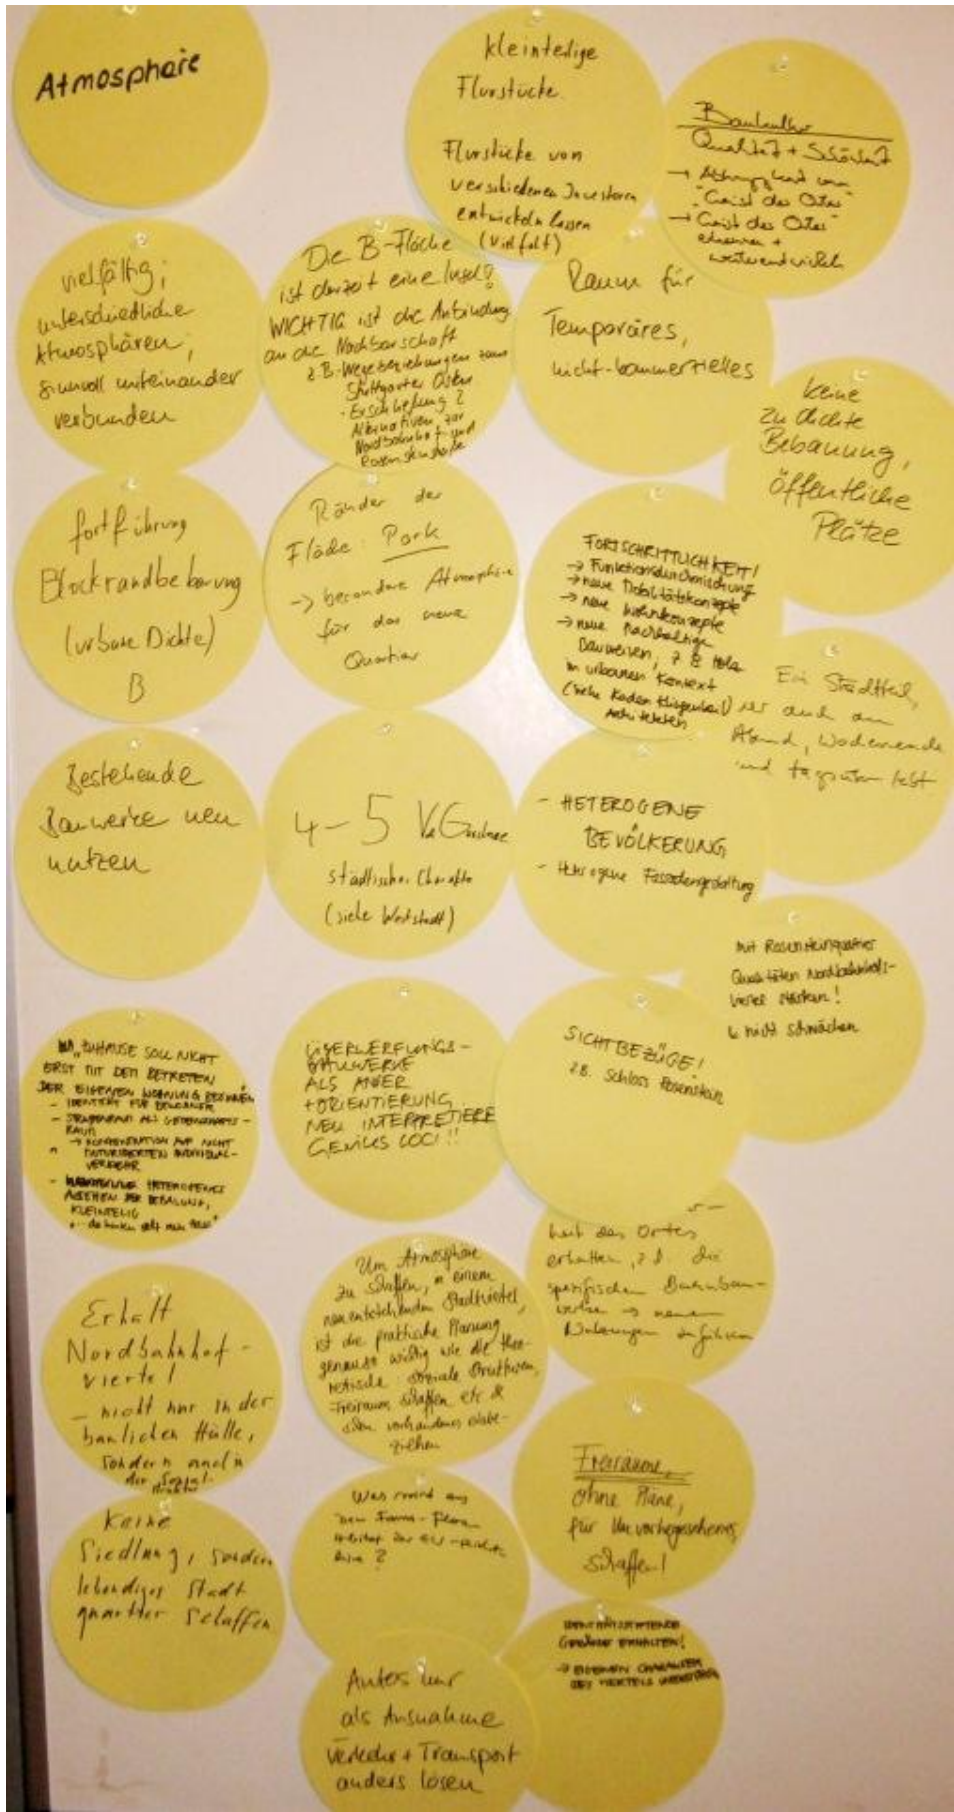 Atmosphäre
kleinteilige
Flurstücke.
Flurstücke von
verschiedenen Investoren
entwickeln lassen
(Vielfalt)
Baukultur
Qualität + Schönheit
"Geist des Ortes"
→ Geist des Ortes
erkennen +
weiterentwickeln
vielfältig,
unterschiedliche
Atmosphären,
sinnvoll miteinander
verbunden
Die B-Fläche
ist derzeit eine Insel!
WICHTIG ist die Anbindung
an die Nachbarschaft
z.B. Wegebeziehungen zum
Stuttgarter Osten
- Erschließung?
Alternativen zur
Nordbahnhof und
Rosensteinstraße
Raum für
Temporäres,
nicht-kommerzielles
keine
zu dichte
Bebauung,
öffentliche
Plätze
fortführung
Blockrandbebauung
(urbane Dichte)
B
Ränder der
Fläche: Park
→ besondere Atmosphäre
für das neue
Quartier
FORTSCHRITTLICHKEIT!
→ Funktionsdurchmischung
→ neue Mobilitätskonzepte
→ neue Wohnkonzepte
→ neue nachhaltige
Bauweisen, z B Holz
in urbanen Kontext
(siehe Kaden Klingbeil)
Architekten
Ein Stadtteil,
der auch am
Abend, Wochenende
und tagsüber lebt
Bestehende
Bauwerke neu
nutzen
4-5
städtischer Charakter
(siehe Weststadt)
- HETEROGENE
BEVÖLKERUNG
- Heterogene Fassadengestaltung
mit Rosensteinquartier
Qualitäten Nordbahnhofs-
viertel stärken!
↳ nicht schwächen
"ZUHAUSE SOLL NICHT
ERST MIT DEM BETRETEN
DER EIGENEN WOHNUNG BEGINNEN
- IDENTITÄT FÜR BEWOHNER
- STRASSENRAUM ALS GEMEINSCHAFTS-
RAUM
→ KONZENTRATION AUF NICHT
MOTORISIERTEN INDIVIDUAL-
VERKEHR
- HETEROGENES
AUSSEHEN DER BEBAUUNG,
KLEINTEILIG
ÜBERWERFUNGS-
BAUWERKE
ALS ANKER
+ ORIENTIERUNG
NEU INTERPRETIEREN
GENIUS LOCI!!
SICHTBEZÜGE!
z.B. Schloss Rosenstein
heit des Ortes
erhalten, z.B. die
spezifischen Bahnbau-
werke → neuen
Nutzungen zuführen
Erhalt
Nordbahnhof-
viertel
- nicht nur in der
baulichen Hülle,
sondern auch in
der Sozial-
struktur
Um Atmosphäre
zu schaffen, in einem
neu entstehenden Stadtviertel,
ist die praktische Planung
genauso wichtig wie die theo-
retische soziale Strukturen,
Freiraum schaffen etc &
vorhandenes einbe-
ziehen
Freiräume,
ohne Pläne,
für Unvorhergesehenes,
schaffen!
Keine
Siedlung, sondern
lebendiges Stadt
quartier schaffen
Was wird aus
IDENTITÄTSSTIFTENDE
GEBÄUDE ERHALTEN!
→ EIGENEN CHARAKTER
DES VIERTELS
Autos nur
als Ausnahme
Verkehr + Transport
anders lösen